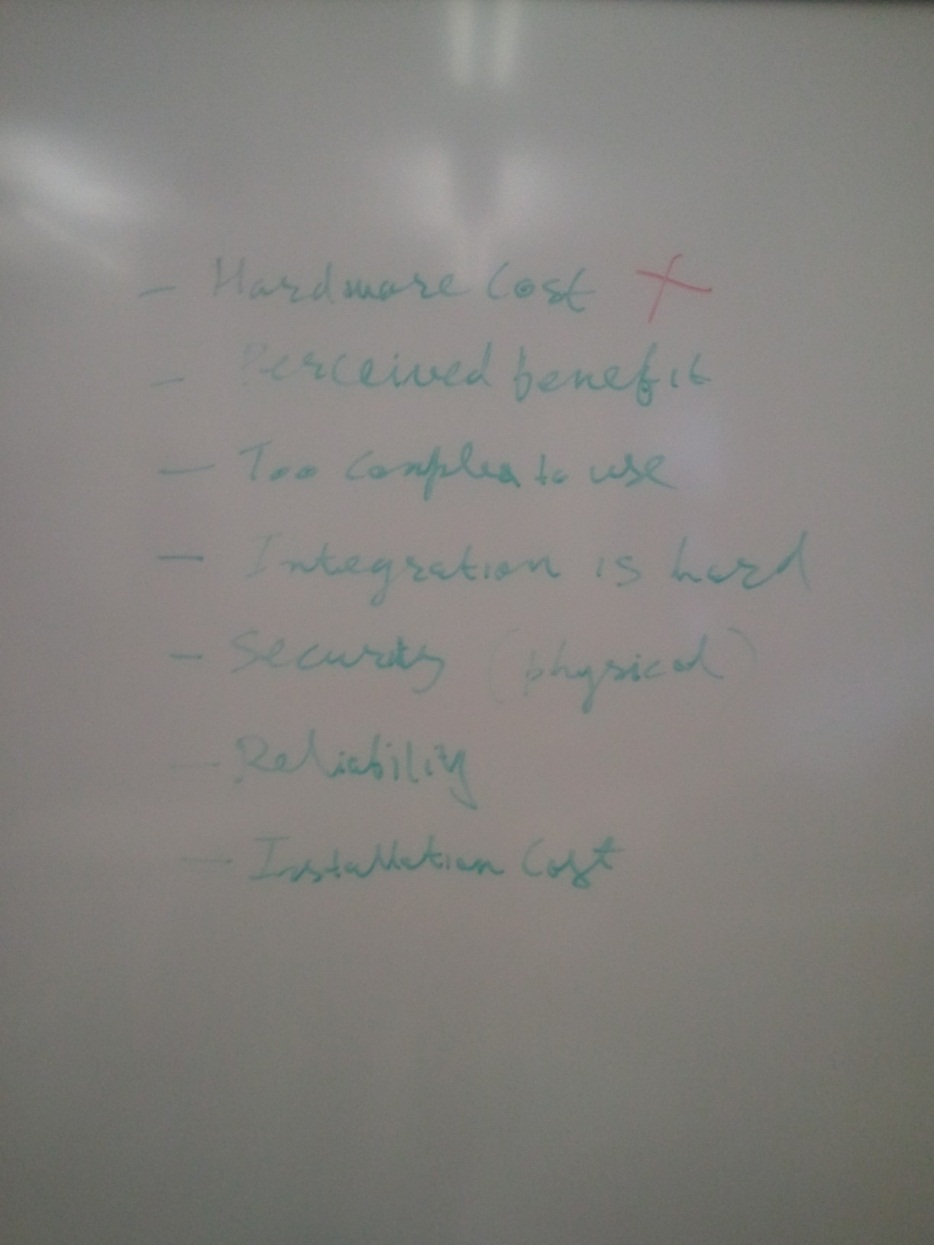 - Hardware Cost X
- Perceived benefit
- Too complex to use
- Integration is hard
- Security (physical)
- Reliability
- Installation Cost